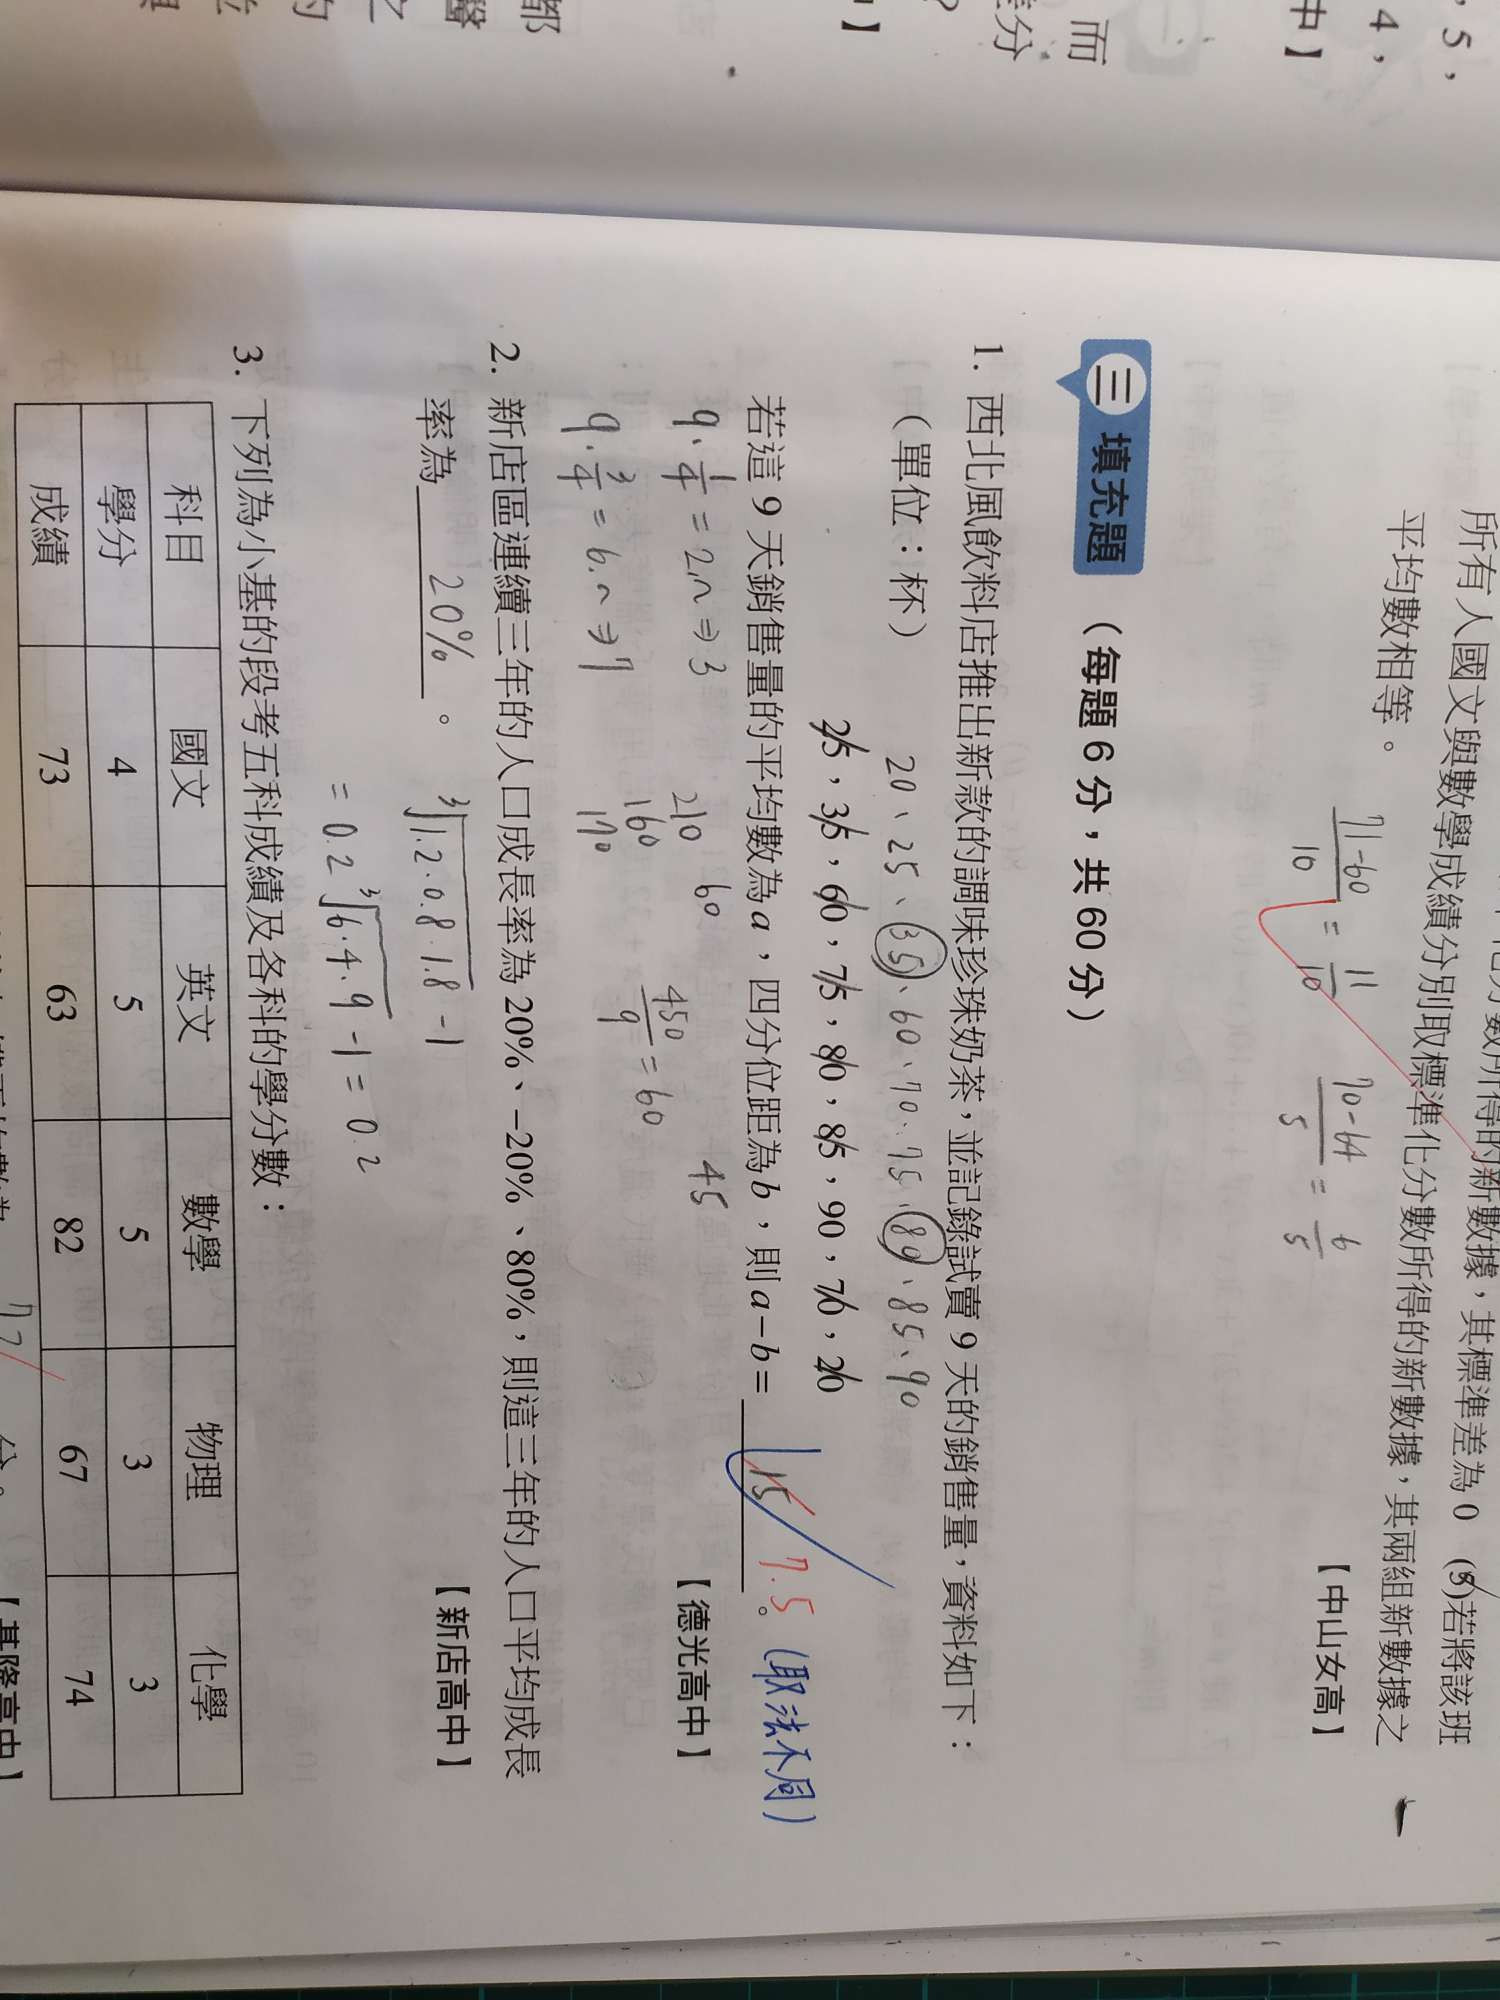 ，5，
4，
中】
而
分
】
都
醫
的
所有人國文與數學成績分別取標準化分數所得的新數據，其兩組新數據之
數所得的新數據，其標準差為0 (5)若將該班
平均數相等。
【中山女高】
71-60/10 = 11/10
70-64/5 = 6/5
三 填充題 （每題6分，共60分）
1. 西北風飲料店推出新款的調味珍珠奶茶，並記錄試賣9天的銷售量，資料如下：
（單位：杯）
20、25、35、60、70、75、80、85、90
25，35，60，75，80，85，90，70，20
若這9天銷售量的平均數為a，四分位距為b，則a−b= 15 。
7.5
(取法不同)
【德光高中】
9·1/4 = 2.~ ⇒ 3
9·3/4 = 6.~ ⇒ 7
210
160
170
60
450/9 = 60
45
2. 新店區連續三年的人口成長率為20%、−20%、80%，則這三年的人口平均成長
率為 20% 。
【新店高中】
³√1.2·0.8·1.8 -1
= 0.2 ³√6·4·9 -1 = 0.2
3. 下列為小基的段考五科成績及各科的學分數：
科目 國文 英文 數學 物理 化學
學分 4 5 5 3 3
成績 73 63 82 67 74
77
分。
【基隆高中】